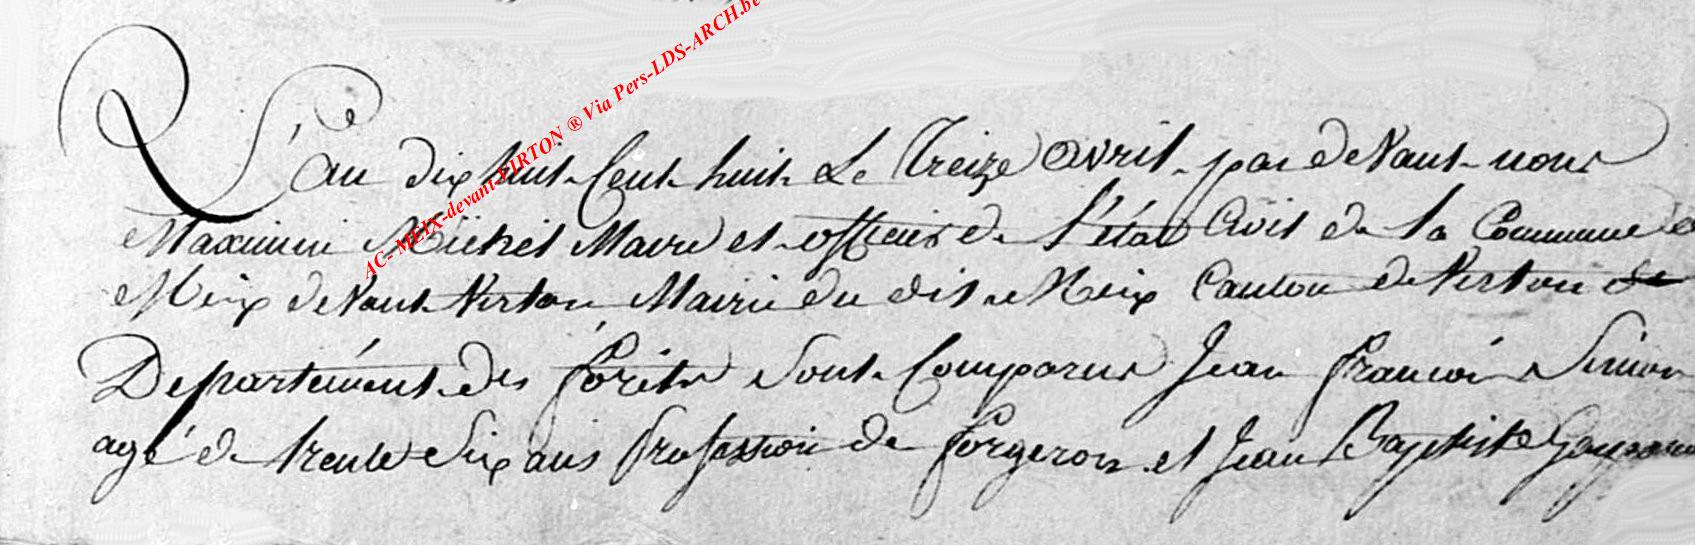 AC-MEIX-devant-VIRTON ® Via Pers-LDS-ARCH.be
L'an dix huit Cent huit Le Treize avril par deVant nous
Maximin Michel Maire et officier de l'état Civil de la Commune de
Meix deVant Virton Mairie du dit Meix Canton de Virton de
Departément des forêts sont Comparus Jean françois Simon
agé de trente Six ans profession de forgeron et Jean Baptiste